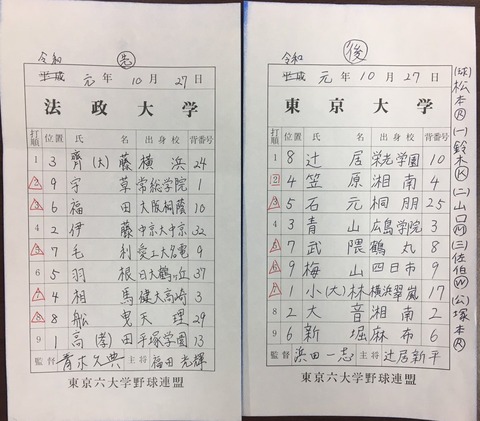 先
令和
平成 元 年 10 月 27 日
法政大学
打順 位置 氏 名 出身校 背番号
1 3 齊(大)藤 横浜 24
2 9 宇草 常総学院 1
3 6 福田 大阪桐蔭 10
4 2 伊藤 中京大中京 32
5 7 毛利 愛工大名電 9
6 5 羽根 日大鶴ヶ丘 37
7 4 相馬 健大高崎 3
8 8 舩曳 天理 29
9 1 高(孝)田 手塚学園 13
監督 青木久典 主将 福田光輝
東京六大学野球連盟
後
令和
平成 元 年 10 月 27 日
東京大学
打順 位置 氏 名 出身校 背番号
1 8 辻居 栄光学園 10
2 4 笠原 湘南 4
3 5 石元 桐朋 25
4 3 青山 広島学院 3
5 7 武隈 鶴丸 8
6 9 梅山 四日市 9
7 1 小(大)林 横浜翠嵐 17
8 2 大音 湘南 2
9 6 新堀 麻布 6
監督 浜田一志 主将 辻居新平
東京六大学野球連盟
(球)松本(R) (一)鈴木(K) (二)山口(M) (三)佐伯(W) (公)塚本(R)